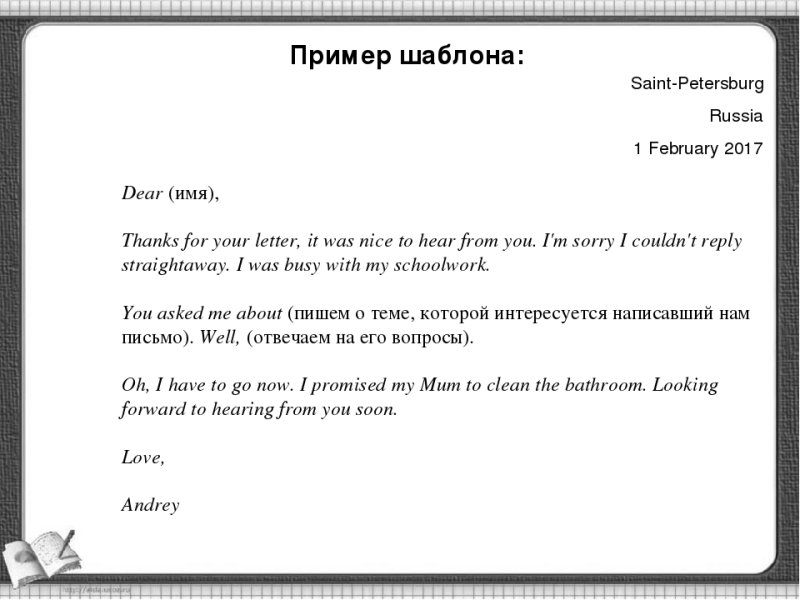 Пример шаблона:
Saint-Petersburg
Russia
1 February 2017
Dear (имя),
Thanks for your letter, it was nice to hear from you. I'm sorry I couldn't reply
straightaway. I was busy with my schoolwork.
You asked me about (пишем о теме, которой интересуется написавший нам
письмо). Well, (отвечаем на его вопросы).
Oh, I have to go now. I promised my Mum to clean the bathroom. Looking
forward to hearing from you soon.
Love,
Andrey